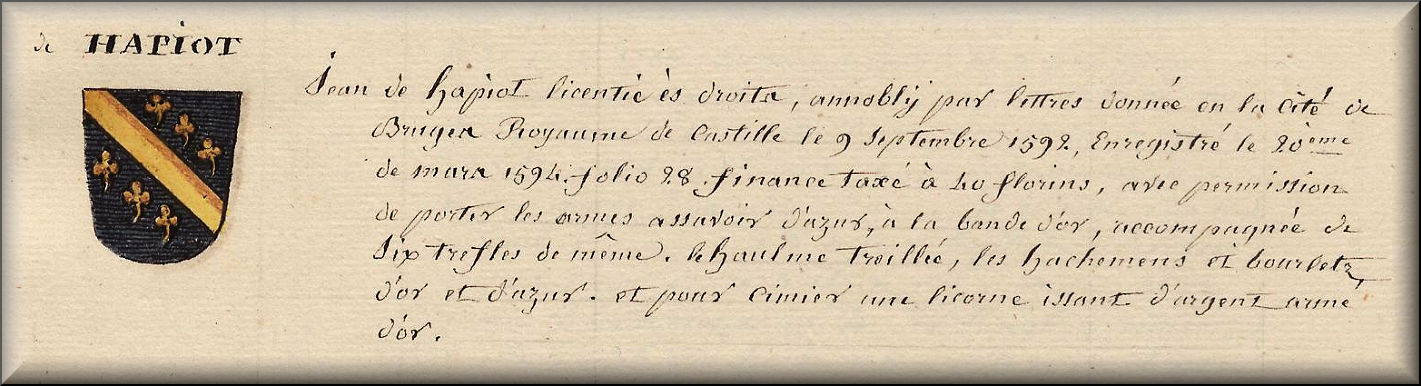 de HAPIOT
Jean de Hapiot licentié ès droits, annobly par lettres donnée en la cité de
Bruges Royaume de Castille le 9 Septembre 1592, Enregistré le 20ème
de mars 1594. folio 28. finance taxé à 40 florins, avec permission
de porter les armes assavoir d'azur, à la bande d'or, accompagnée de
six trefles de même. le haulme treillée, les hachemens et bourletz,
d'or et d'azur. et pour cimier une licorne issant d'argent armé
d'or.